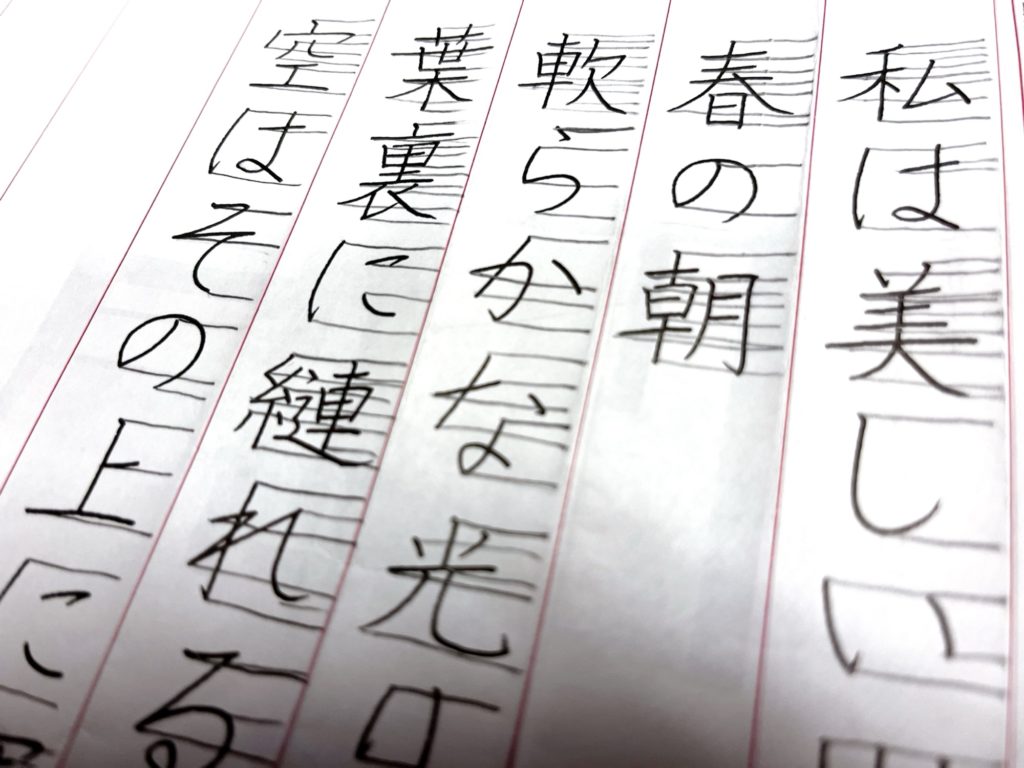 私は美しい
春の朝
軟らかな光
葉裏に縺れる
空はその上に